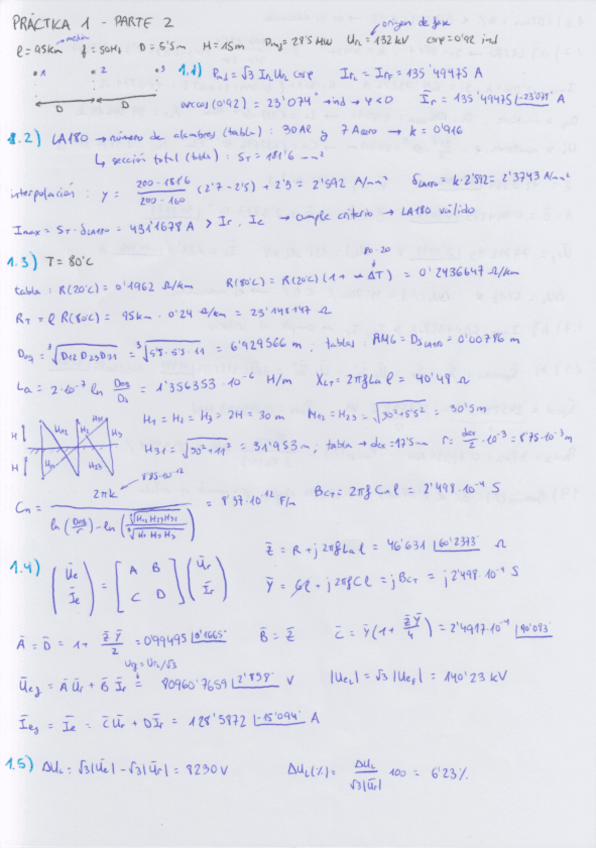 PRÁCTICA 1 - PARTE 2
origen de fase
media
l = 95km f = 50Hz D = 5'5m H = 15m Pnd = 28'5 MW UrL = 132 kV cosφ = 0'92 ind
1 2 3
D D
1.1) Pnd = √3 IrL UrL cosφ IrL = Irf = 135'49475 A
arccos(0'92) = 23'074° → ind → φ<0 Ir = 135'49475 |-23'074° A
1.2) LA180 → número de alambres (tabla) : 30 Al y 7 Acero → k = 0'916
↳ sección total (tabla) : ST = 181'6 mm²
interpolación : y = (200 - 181'6)/(200 - 160) (2'7 - 2'5) + 2'5 = 2'592 A/mm² δLA180 = k·2'592 = 2'3743 A/mm²
Imax = ST · δLA180 = 431'1678 A > Ir, Ie → cumple criterio → LA180 válido
1.3) T = 80°C
80-20
tabla : R(20°C) = 0'1962 Ω/km R(80°C) = R(20°C)(1 + α ΔT) = 0'2436647 Ω/km
RT = l R(80°C) = 95km · 0'24 Ω/km = 23'148147 Ω
Deg = ∛(D12 D23 D31) = ∛(5'5 · 5'5 · 11) = 6'929566 m ; tablas : RMG = Ds = 0'00786 m
La = 2·10⁻⁷ ln Deg/Ds = 1'356353 · 10⁻⁶ H/m XLT = 2πf La l = 40'48 Ω
H H H12 H23 H31 H3
H1 = H2 = H3 = 2H = 30 m H12 = H23 = √(30² + 5'5²) = 30'5 m
H31 = √(30² + 11²) = 31'953 m ; tabla → dce = 17'5mm r = dce/2 · 10⁻³ = 8'75·10⁻³ m
8'85·10⁻¹²
Cn = 2πk / (ln(Deg/r) - ln(∛(H12 H23 H31)/∛(H1 H2 H3))) = 8'37·10⁻¹² F/m BCT = 2πf Cn l = 2'498·10⁻⁴ S
Z = R + j 2πf La l = 46'631 |60'2373° Ω
1.4) (Ue Ie) = [A B C D] (Ur Ir) Y = Gl + j 2πf C l = j BCT = j 2'498·10⁻⁴ S
A = D = 1 + ZY/2 = 0'99495 |0'1665° B = Z C = Y(1 + ZY/4) = 2'4917·10⁻⁴ |90'083°
Uef = A Ur + B Ir = 80960'7659 |2'838° V |UeL| = √3 |Uef| = 140'23 kV
Ief = Ie = C Ur + D Ir = 128'5872 |-15'094° A
1.5) ΔUL = √3|Ue| - √3|Ur| = 8230 V ΔUL(%) = ΔUL/(√3|Ur|) 100 = 6'23%